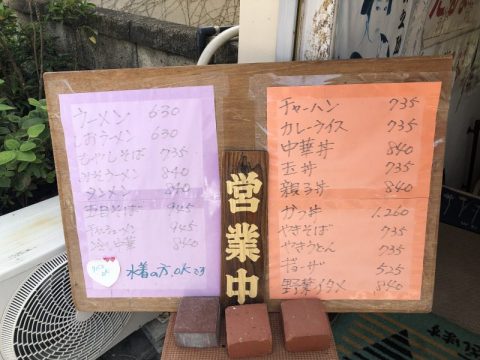 ラーメン 630
しおラーメン 630
もやしそば 735
みそラーメン 840
タンメン 840
五目そば 945
チャーシューメン 945
冷し中華 840
水着の方、OKです
営業中
チャーハン 735
カレーライス 735
中華丼 840
玉丼 735
親子丼 840
カツ丼 1,260
やきそば 735
やきうどん 735
ギョーザ 525
野菜イタメ 840